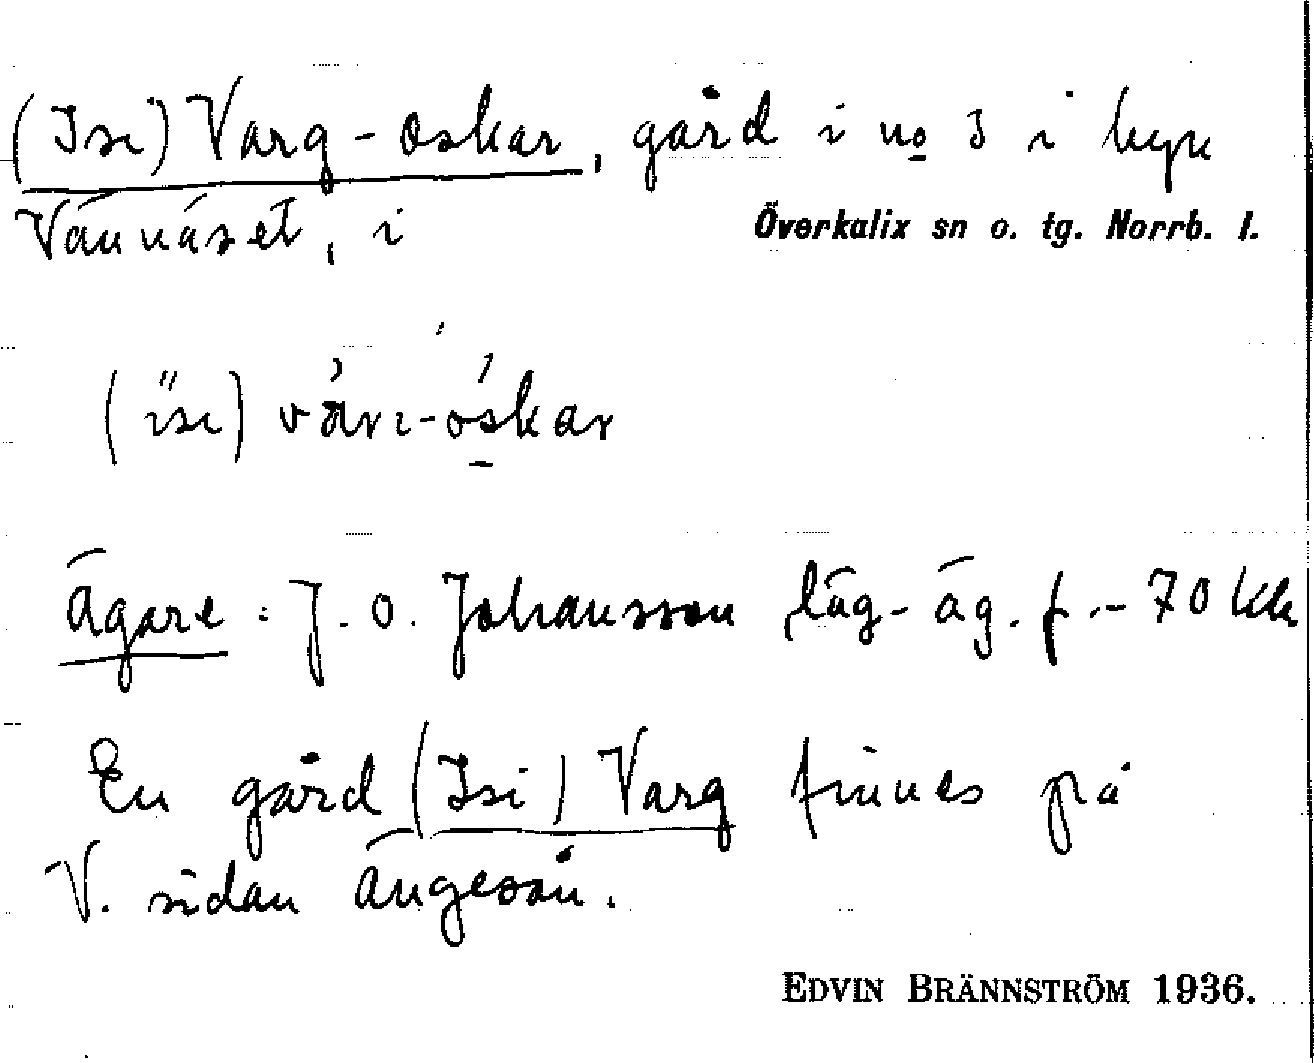 (Isi) Varg-oskar, gård i no 3 i byn
Vännäset, i Överkalix sn o. tg. Norrb. l.
(ïsi) vàrı-óskar
Ägare: J. O. Johansson läg-äg. f.- 70 kk
En gård (Isi) Varg finnes på
V. sidan ängesån.
EDVIN BRÄNNSTRÖM 1936.